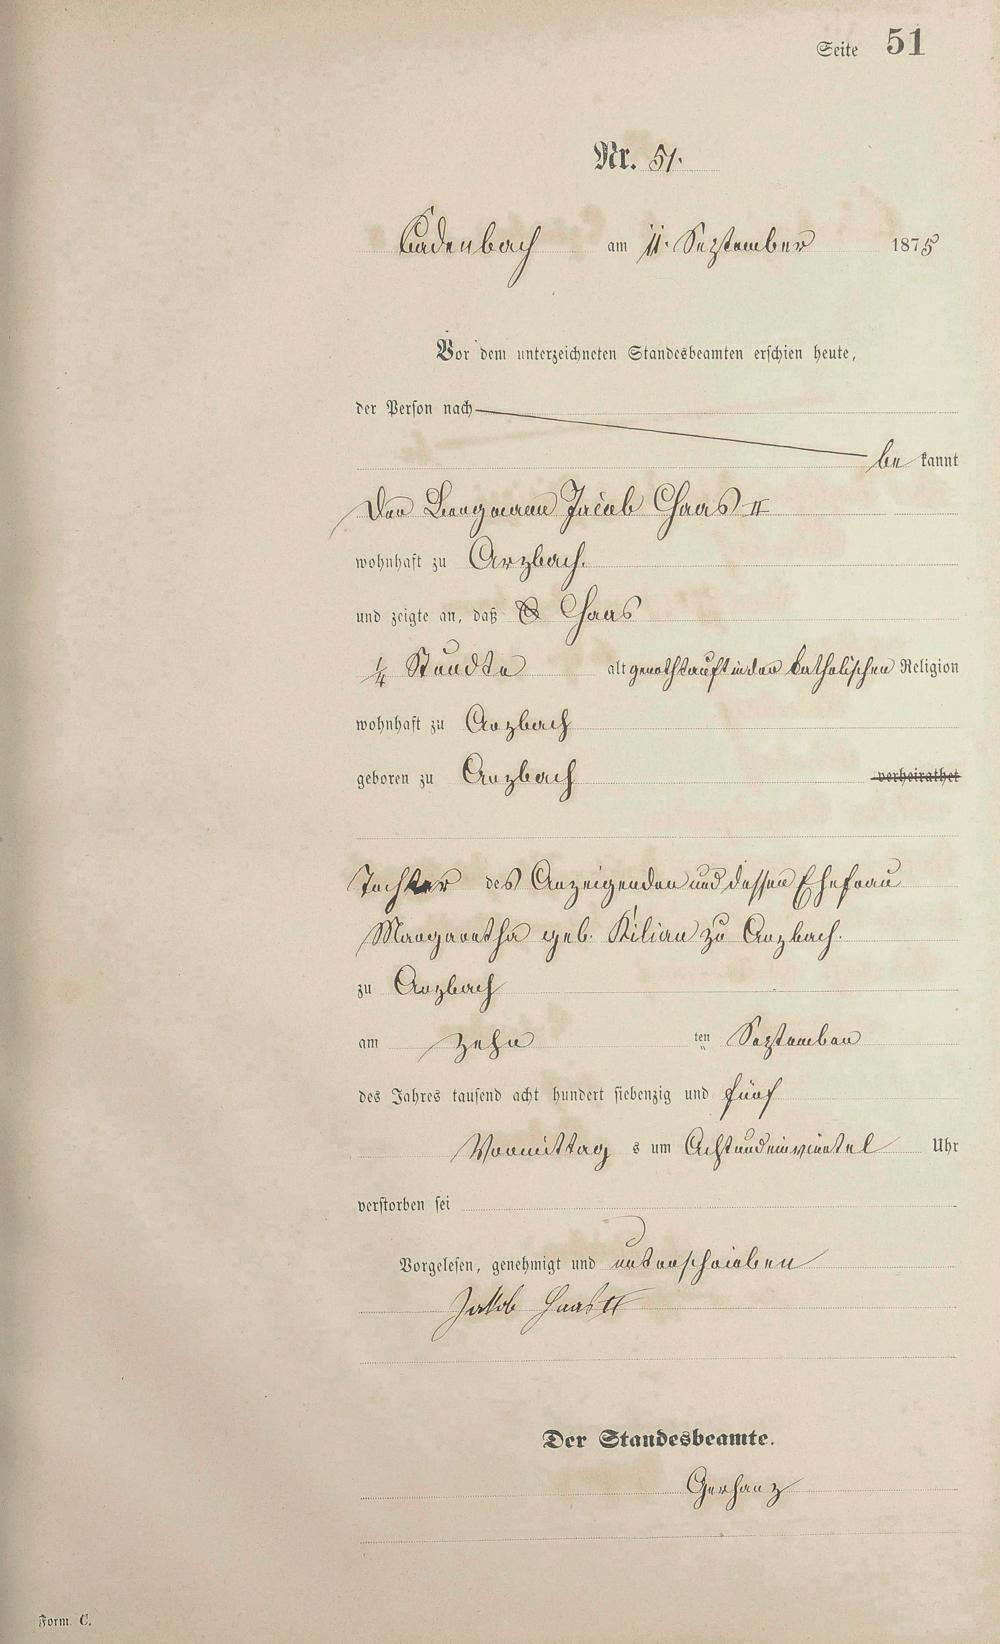 Seite 51
Nr. 51.
Cadenbach am 11. September 1875
Vor dem unterzeichneten Standesbeamten erschien heute,
der Person nach
be kannt
Der Bergmann Jacob Chaas II
wohnhaft zu Arzbach.
und zeigte an, daß Chaas
1/4 Stundte alt genothtauft in der katholischen Religion
wohnhaft zu Arzbach
geboren zu Arzbach verheirathet
Tochter des Anzeigenden und dessen Ehefrau
Margaretha geb. Kilian zu Arzbach.
zu Arzbach
am zehn ten September
des Jahres tausend acht hundert siebenzig und fünf
Vormittag s um Achtundeinviertel Uhr
verstorben sei
Vorgelesen, genehmigt und unterschrieben
Jakob Haas II
Der Standesbeamte.
Gerhanz
Form. C.